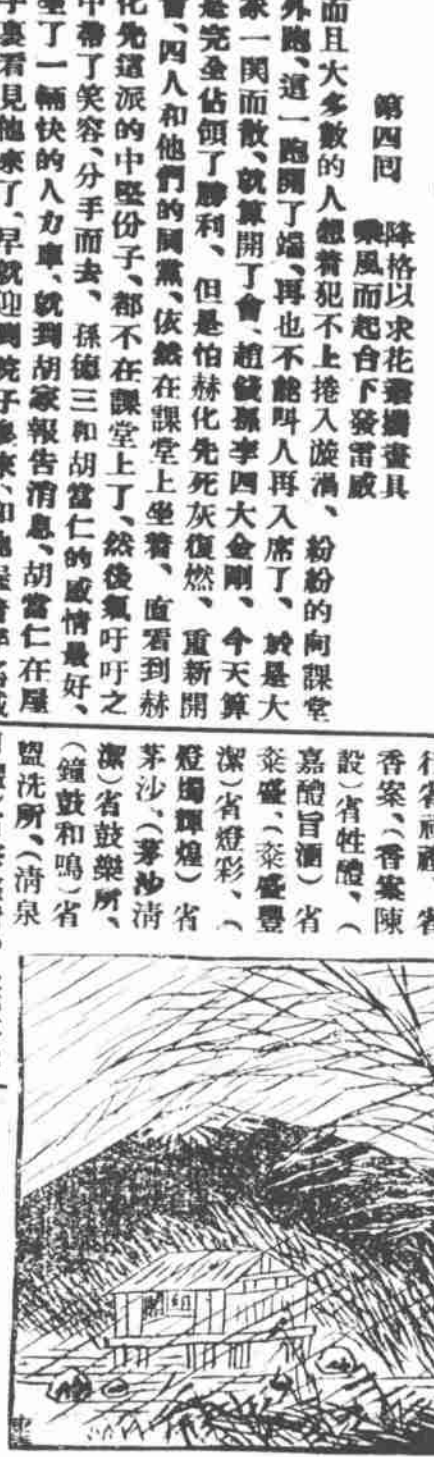 第四回
降格以求花叢攜畫具
乘風而起台下發雷威
而且大多數的人想着犯不上捲入漩渦、紛紛的向課堂
外跑、這一跑開了端、再也不能叫人再入席了、於是大
家一閧而散、就算開了會、趙錢孫李四大金剛、今天算
是完全佔領了勝利、但是怕赫化先死灰復燃、重新開
會、四人和他們的同黨、依然在課堂上坐着、直看到赫
化先這派的中堅份子、都不在課堂上了、然後氣吁吁之
中帶了笑容、分手而去、孫德三和胡當仁的感情最好、
坐了一輛快的人力車、就到胡家報告消息、胡當仁在屋
子裏看見他來了、早就迎到院子
香案、(香案陳
設)省牲醴、(
嘉醴旨酒)省
粢盛、(粢盛豐
潔)省燈彩、(
燈燭輝煌)省
茅沙、(茅沙清
潔)省鼓樂所、
(鐘鼓和鳴)省
盥洗所、(清泉